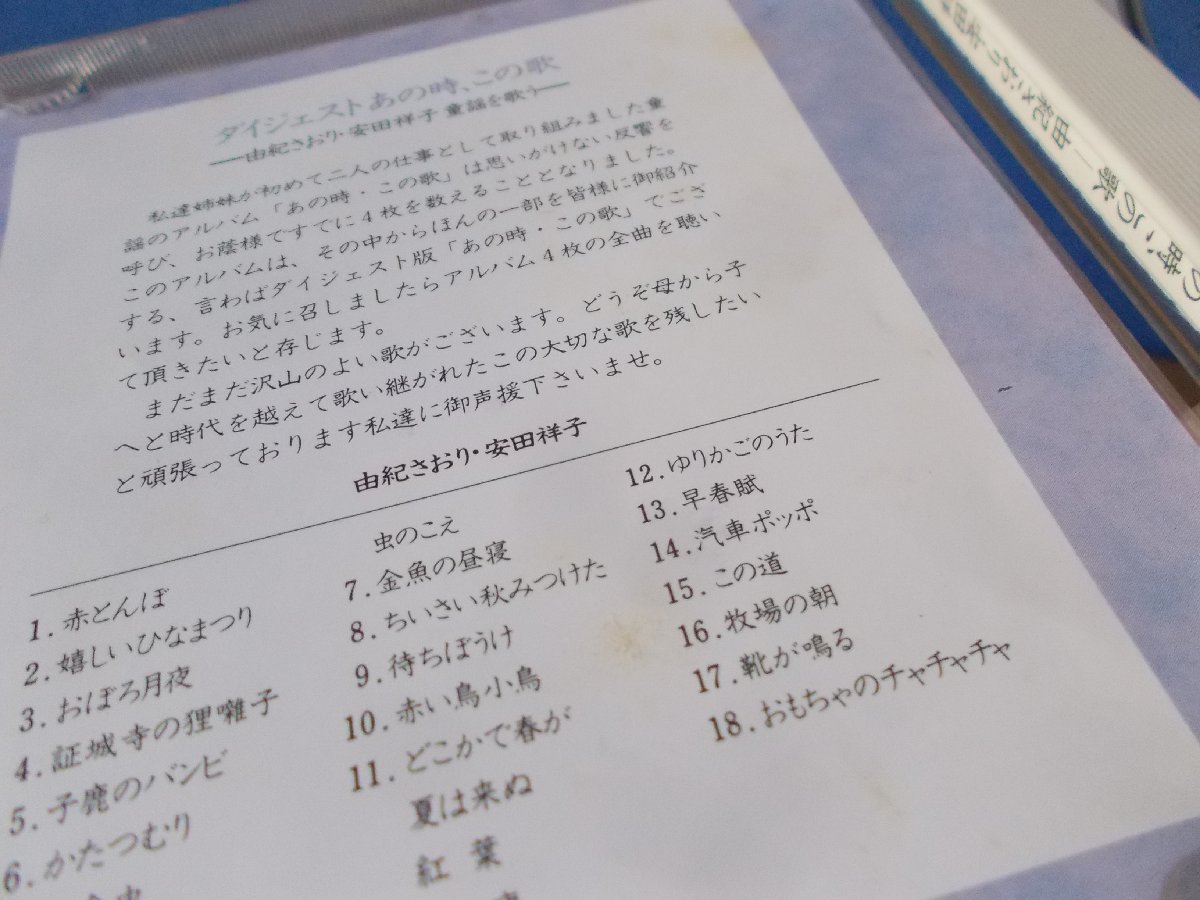 ダイジェストあの時、この歌
―由紀さおり・安田祥子 童謡を歌う―
私達姉妹が初めて二人の仕事として取り組みました童
謡のアルバム「あの時・この歌」は思いがけない反響を
呼び、お蔭様ですでに4枚を数えることとなりました。
このアルバムは、その中からほんの一部を皆様に御紹介
する、言わばダイジェスト版「あの時・この歌」でござ
います。お気に召しましたらアルバム4枚の全曲を聴い
て頂きたいと存じます。
まだまだ沢山のよい歌がございます。どうぞ母から子
へと時代を越えて歌い継がれたこの大切な歌を残したい
と頑張っております私達に御声援下さいませ。
由紀さおり・安田祥子
1.赤とんぼ
2.嬉しいひなまつり
3.おぼろ月夜
4.証城寺の狸囃子
5.子鹿のバンビ
6.かたつむり
虫のこえ
7.金魚の昼寝
8.ちいさい秋みつけた
9.待ちぼうけ
10.赤い鳥小鳥
11.どこかで春が
夏は来ぬ
紅葉
12.ゆりかごのうた
13.早春賦
14.汽車ポッポ
15.この道
16.牧場の朝
17.靴が鳴る
18.おもちゃのチャチャチャ
の時、この歌―由紀さおり・安田